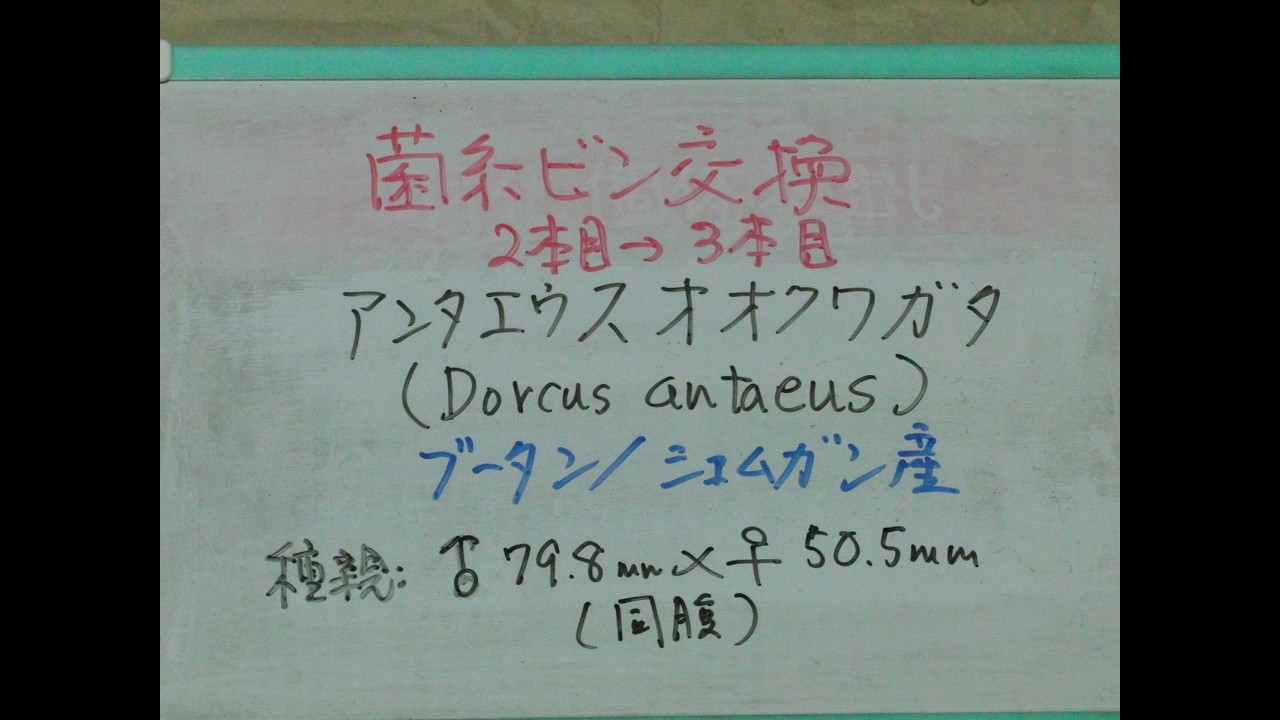 菌糸ビン交換
2本目→3本目
アンタエウスオオクワガタ
(Dorcus antaeus)
ブータン/シェムガン産
種親:♂79.8mm×♀50.5mm
(同腹)